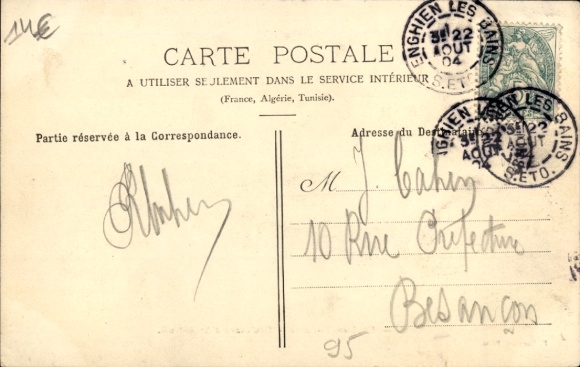 14€
CARTE POSTALE
A UTILISER SEULEMENT DANS LE SERVICE INTÉRIEUR
(France, Algérie, Tunisie).
Partie réservée à la Correspondance.
Adresse du Destinataire
ENGHIEN LES BAINS
22
AOUT
04
S.ETO.
ENGHIEN LES BAINS
22
AOUT
04
S.ETO.
M J. Cahen
10 Rue Préfecture
Besançon
95